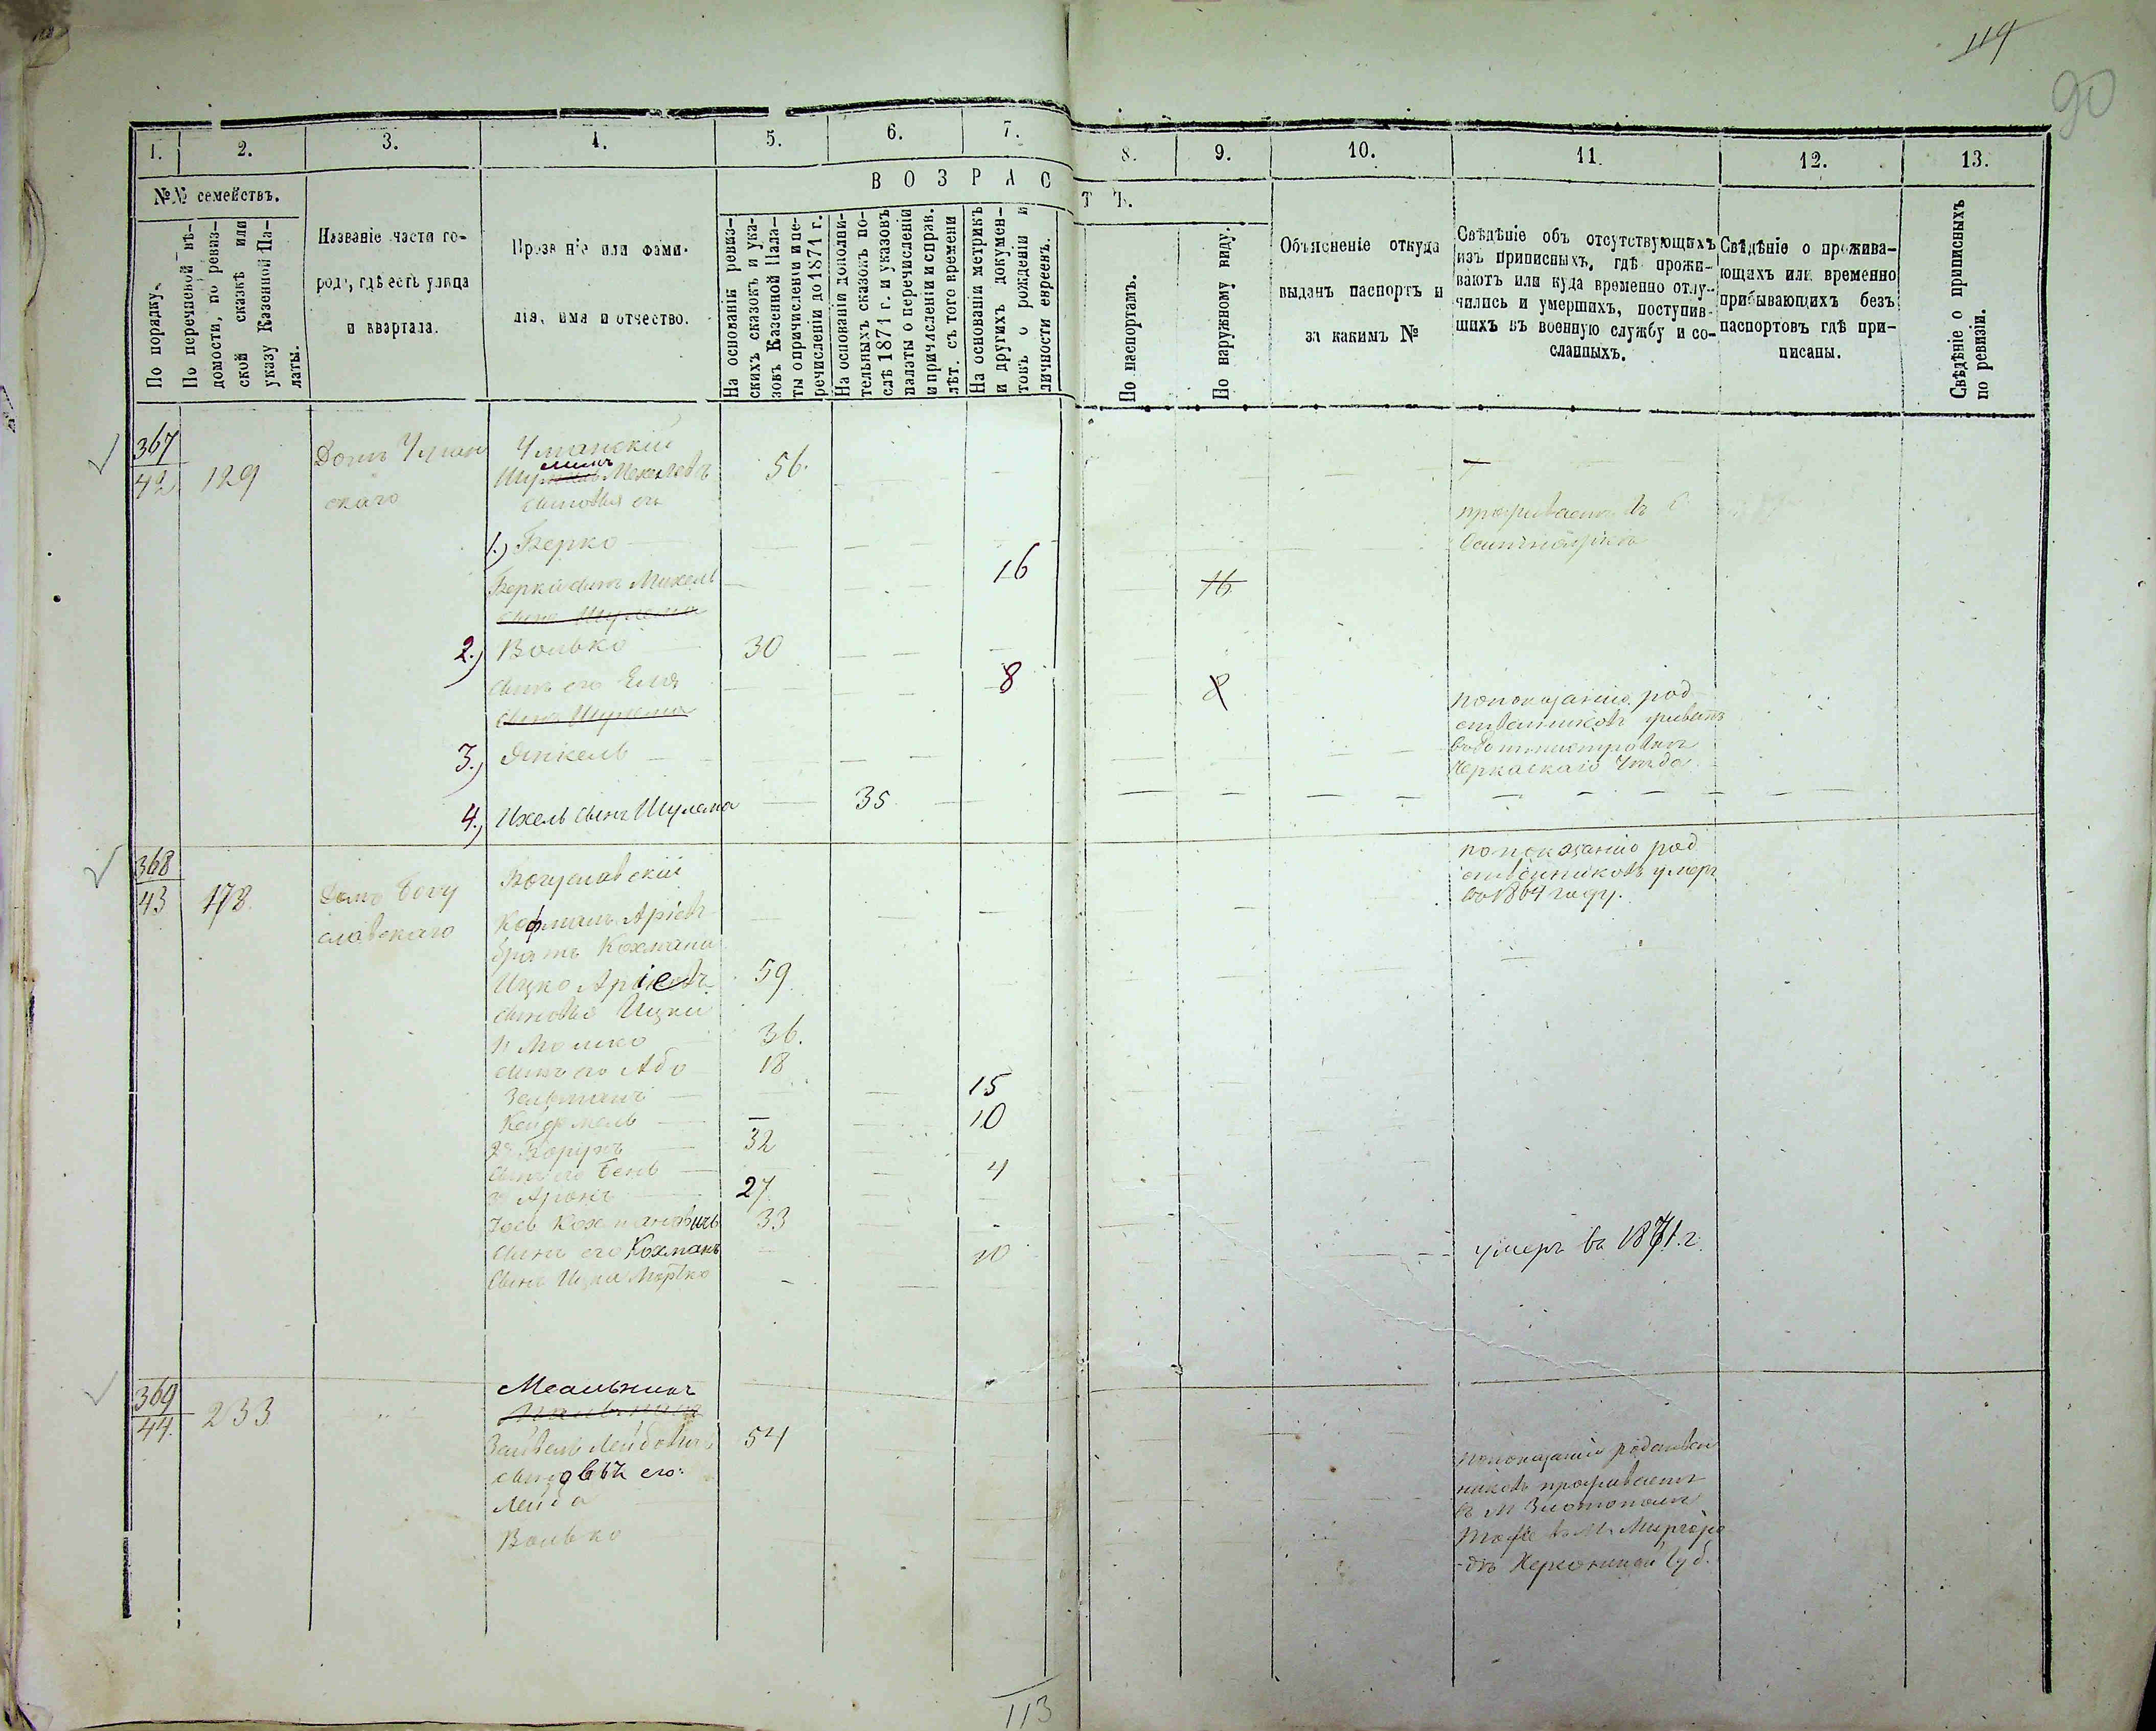 114
90
1.
2.
3.
4.
5.
6.
7.
8.
9.
10.
11.
12.
13.
№№ семействъ.
По порядку.
По перечневой вѣ-
домости, по ревиз-
ской сказкѣ или
указу Казенной Па-
латы.
Названіе части го-
рода, гдѣ есть улица
и квартала.
Прозваніе или фами-
лія, имя и отчество.
ВОЗРАСТЪ.
На основаніи ревиз-
скихъ сказокъ и ука-
зовъ Казенной Пала-
ты о причисленіи и пе-
речисленіи до 1871 г.
На основаніи дополни-
тельныхъ сказокъ по-
слѣ 1871 г. и указовъ
палаты о перечисленіи
и причисленіи и справ.
лѣт. съ того времени
На основаніи метрикъ
и другихъ докумен-
товъ о рожденіи и
личности евреевъ.
По паспортамъ.
По наружному виду.
Объясненіе откуда
выданъ паспортъ и
за какимъ №
Свѣдѣніе объ отсутствующихъ
изъ приписныхъ, гдѣ прожи-
ваютъ или куда временно отлу-
чились и умершихъ, поступив-
шихъ въ военную службу и со-
сланныхъ.
Свѣдѣніе о прожива-
ющихъ или временно
прибывающихъ безъ
паспортовъ гдѣ при-
писаны.
Свѣдѣніе о приписныхъ
по ревизіи.
367
42
129
Домъ Уман
скаго
Уманскій
56.
сыновья его
1.) Берко
проживаетъ въ
Берки сынъ Михель
16
16
сынъ Шулема
2.) Волько
30
сынъ его Еля
8
8
сынъ Шулема
3.) Янкель
по показанію род
ственниковъ
Черкаскаго Уезда
4.) Ихель сынъ Шулема
35
368
43
178.
Домъ Богу
славскаго
Богуславскій
Кохманъ Аріевъ
по показанію род
ственниковъ умеръ
въ 1864 году.
братъ Кохмана
Ицко Аріевъ
59
сыновья Ицки
1. Мошко
36.
сынъ его Аба
18
Зельманъ
15
10
2. Борухъ
32
сынъ его Бень
4
3. Аронъ
27
Іось Кохмановичъ
33
сынъ его Кохманъ
10
умеръ въ 1871 г.
сынъ Ицки
369
44.
233
Мельникъ
Зейвель Лейбовичъ
54
сыновья его:
Лейба
Волько
по показанію родствен
никовъ проживаетъ
въ М Златополѣ
тоже въ М. Миргоро
-дѣ Херсонской Губ.
113